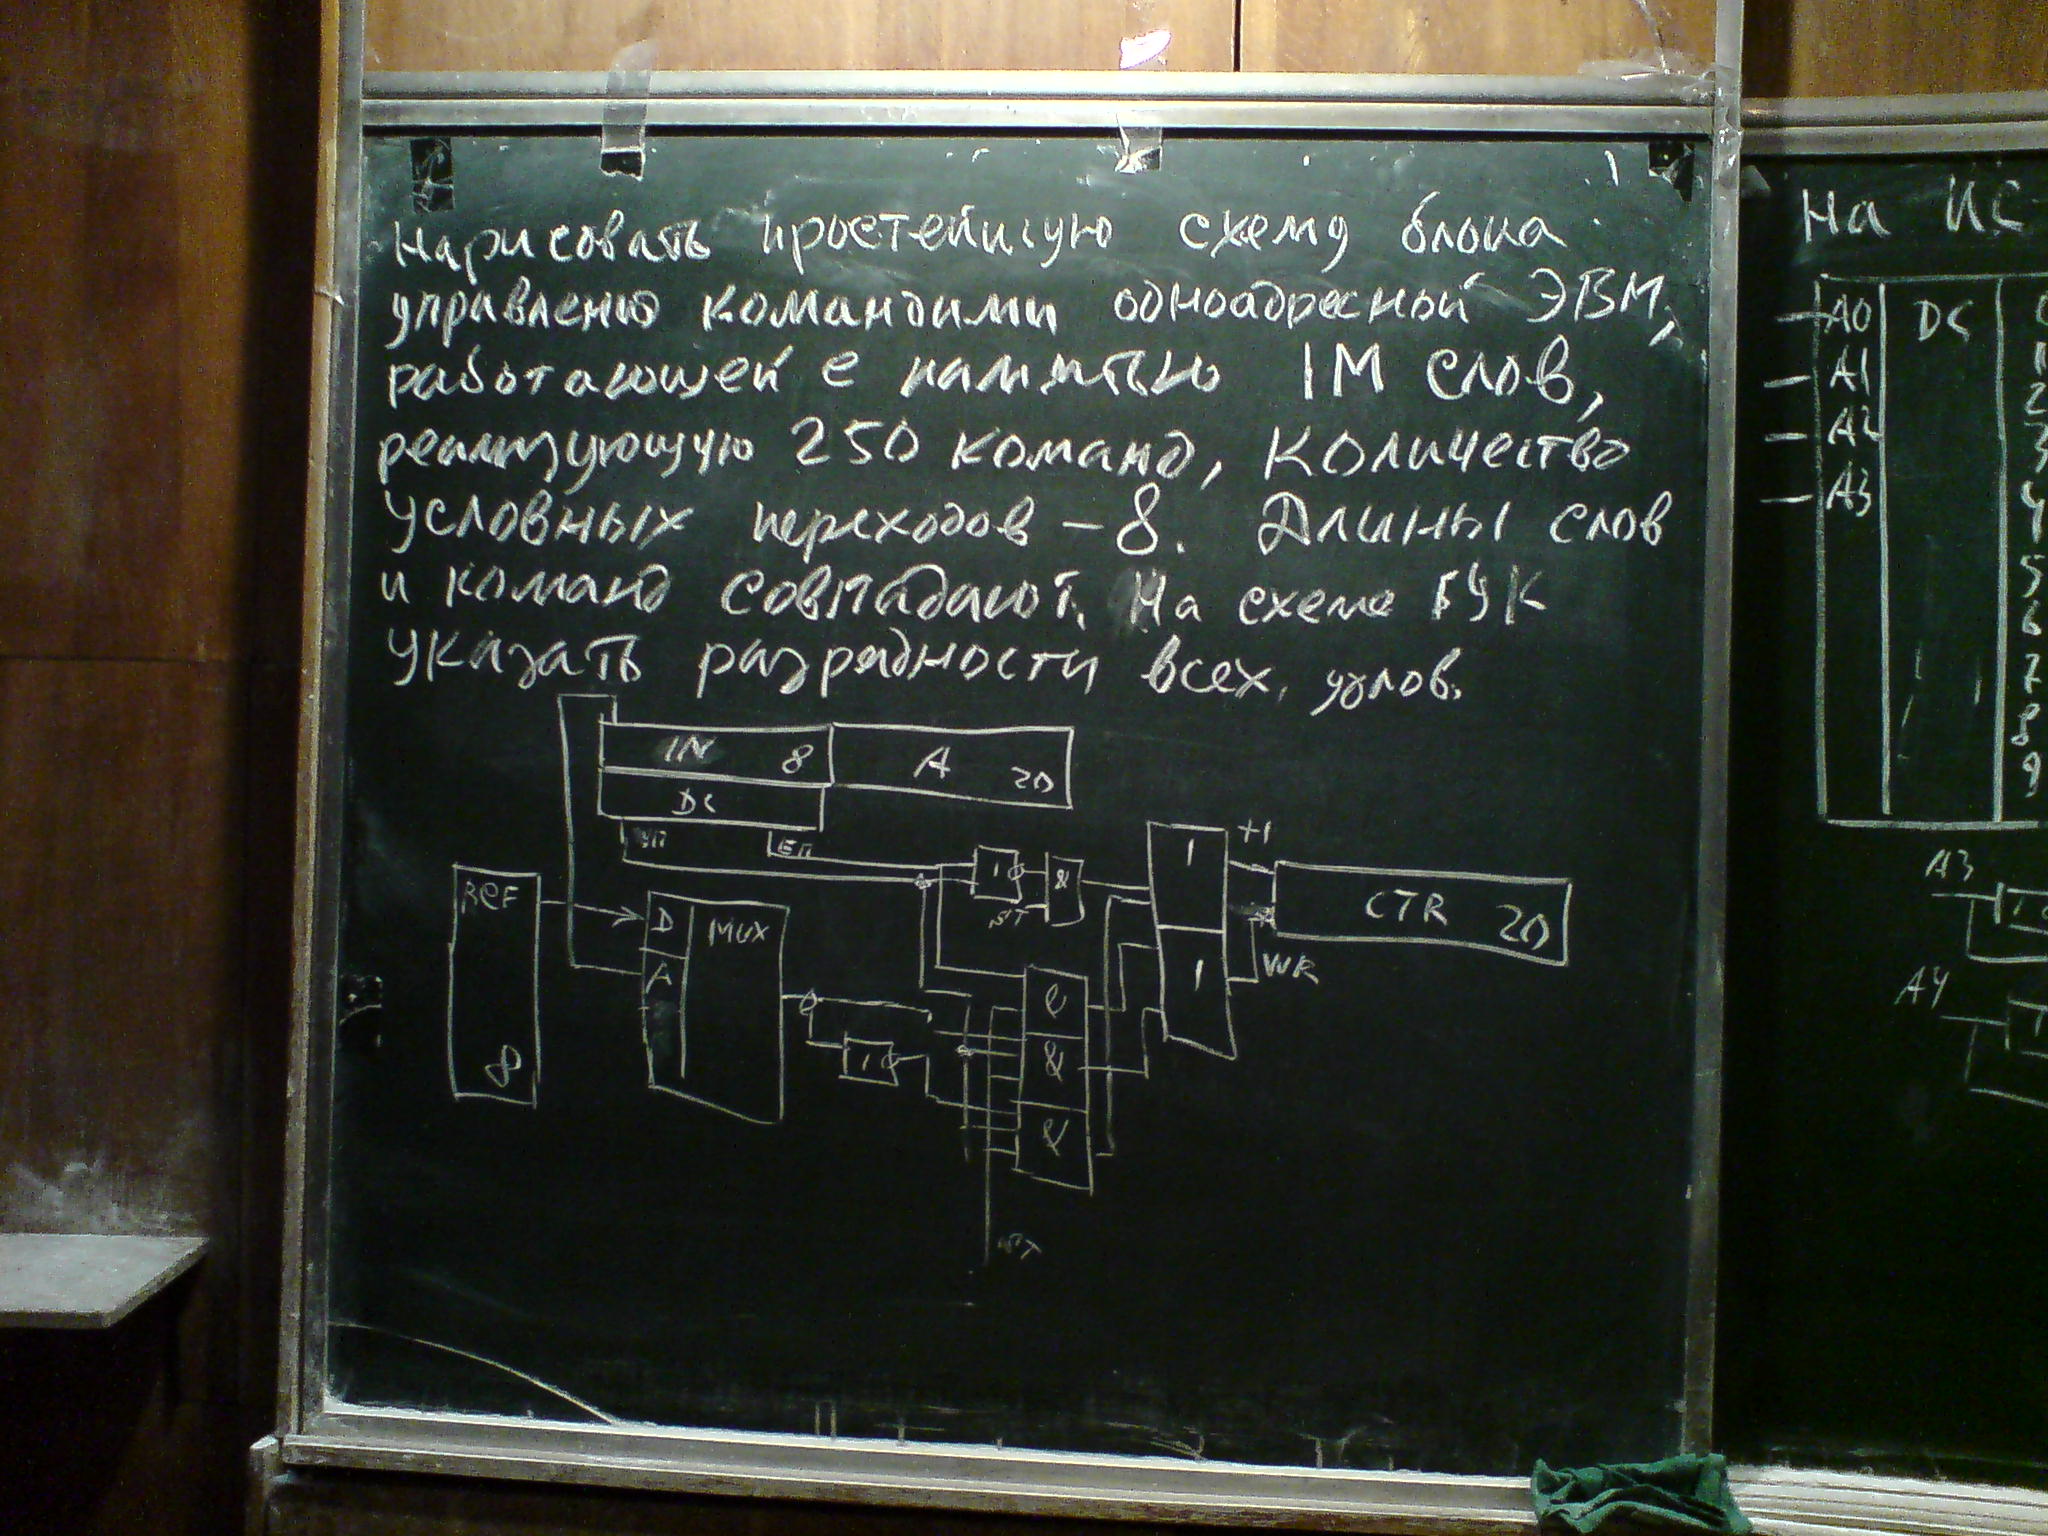 Нарисовать простейшую схему блока
управления командами одноадресной ЭВМ,
работающей с памятью 1М слов,
реализующую 250 команд, Количество
условных переходов – 8. Длины слов
и команд совпадают. На схеме БУК
указать разрядности всех узлов.
IN 8 A 20
DC
УП БП
1 &
1 +1
CTR 20
1 WR
REF 8
D MUX
A
1
&
&
&
На ИС
A0 DC
A1 1
A2 2
A3 3
4
5
6
7
8
9
A3
A4